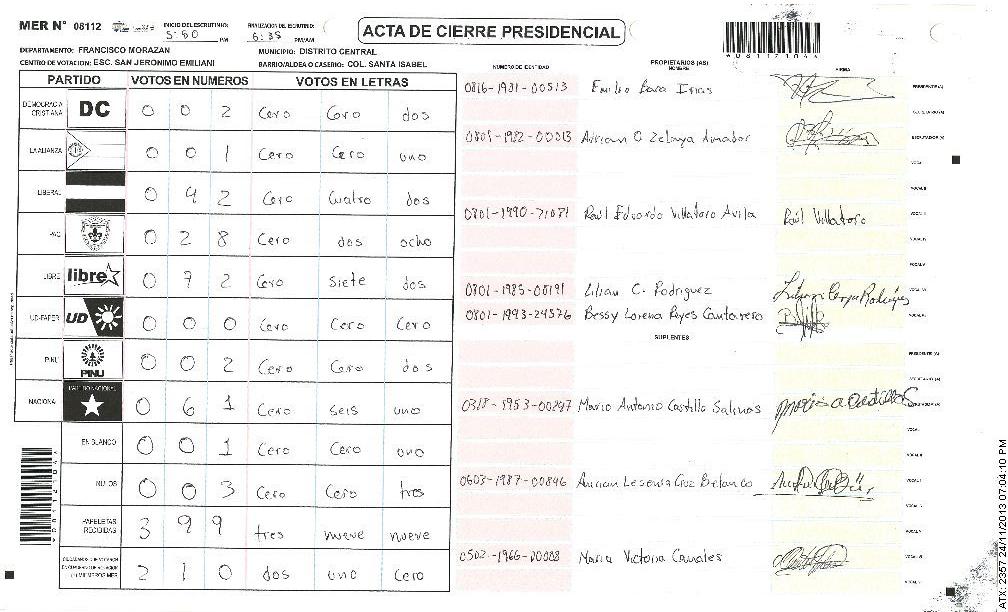 MER N° 08112
INICIO DEL ESCRUTINIO: 5:50 PM
FINALIZACION DEL ESCRUTINIO: 6:38 PM/AM
ACTA DE CIERRE PRESIDENCIAL
DEPARTAMENTO: FRANCISCO MORAZAN
MUNICIPIO: DISTRITO CENTRAL
CENTRO DE VOTACION: ESC. SAN JERONIMO EMILIANI
BARRIO/ALDEA O CASERIO: COL. SANTA ISABEL
PARTIDO VOTOS EN NUMEROS VOTOS EN LETRAS
DEMOCRACIA CRISTIANA DC 0 0 2 Cero Cero dos
LA ALIANZA 0 0 1 Cero Cero uno
LIBERAL 0 42 Cero Cuatro dos
PAC 0 2 8 Cero dos ocho
LIBRE libre 0 7 2 Cero Siete dos
UD-FAPER UD 0 0 0 Cero Cero Cero
PINU PINU 0 0 2 Cero Cero dos
NACIONAL PARTIDO NACIONAL 0 6 1 Cero seis uno
EN BLANCO 0 0 1 Cero Cero uno
NULOS 0 0 3 Cero Cero tres
PAPELETAS RECIBIDAS 3 9 9 tres nueve nueve
2 1 0 dos uno Cero
NUMERO DE IDENTIDAD
PROPIETARIOS (AS)
NOMBRE
FIRMA
PRESIDENTE (A)
Emilio
SECRETARIO (A)
Adrian O Zelaya Amador
ESCRUTADOR (A)
VOCAL I
VOCAL II
Raúl Eduardo Villatoro Avila Raúl Villatoro
VOCAL III
VOCAL IV
VOCAL V
0801-1985-08191 Lilian C. Rodriguez
VOCAL VI
0801-1993-24576 Bessy Lorena Reyes Cantarero
SUPLENTES
PRESIDENTE (A)
SECRETARIO (A)
0318-1953-00247 Mario Antonio Castillo Salinas
VOCAL I
0603-1987-00846
0502-1966-00088 Maria Victoria Canales
ATX: 2357 24/11/2013 07:04:10 PM